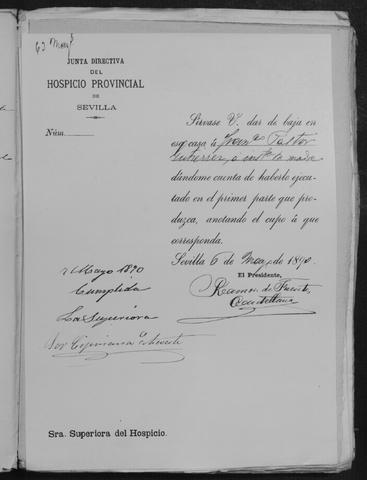 63 Mayo
JUNTA DIRECTIVA
DEL
HOSPICIO PROVINCIAL
DE
SEVILLA
Núm.
Sírvase V. dar de baja en
esa casa á Fran.ca Pastor
Gutierrez, a inst.a la madre
dándome cuenta de haberlo ejecu-
tado en el primer parte que pro-
duzca, anotando el cupo á que
corresponda.
Sevilla 6 de Mayo de 1890.
El Presidente,
Ramon de Fuente
7 Mayo 1890
Cumplida
La Superiora
Sor Cipriana
Sra. Superiora del Hospicio.